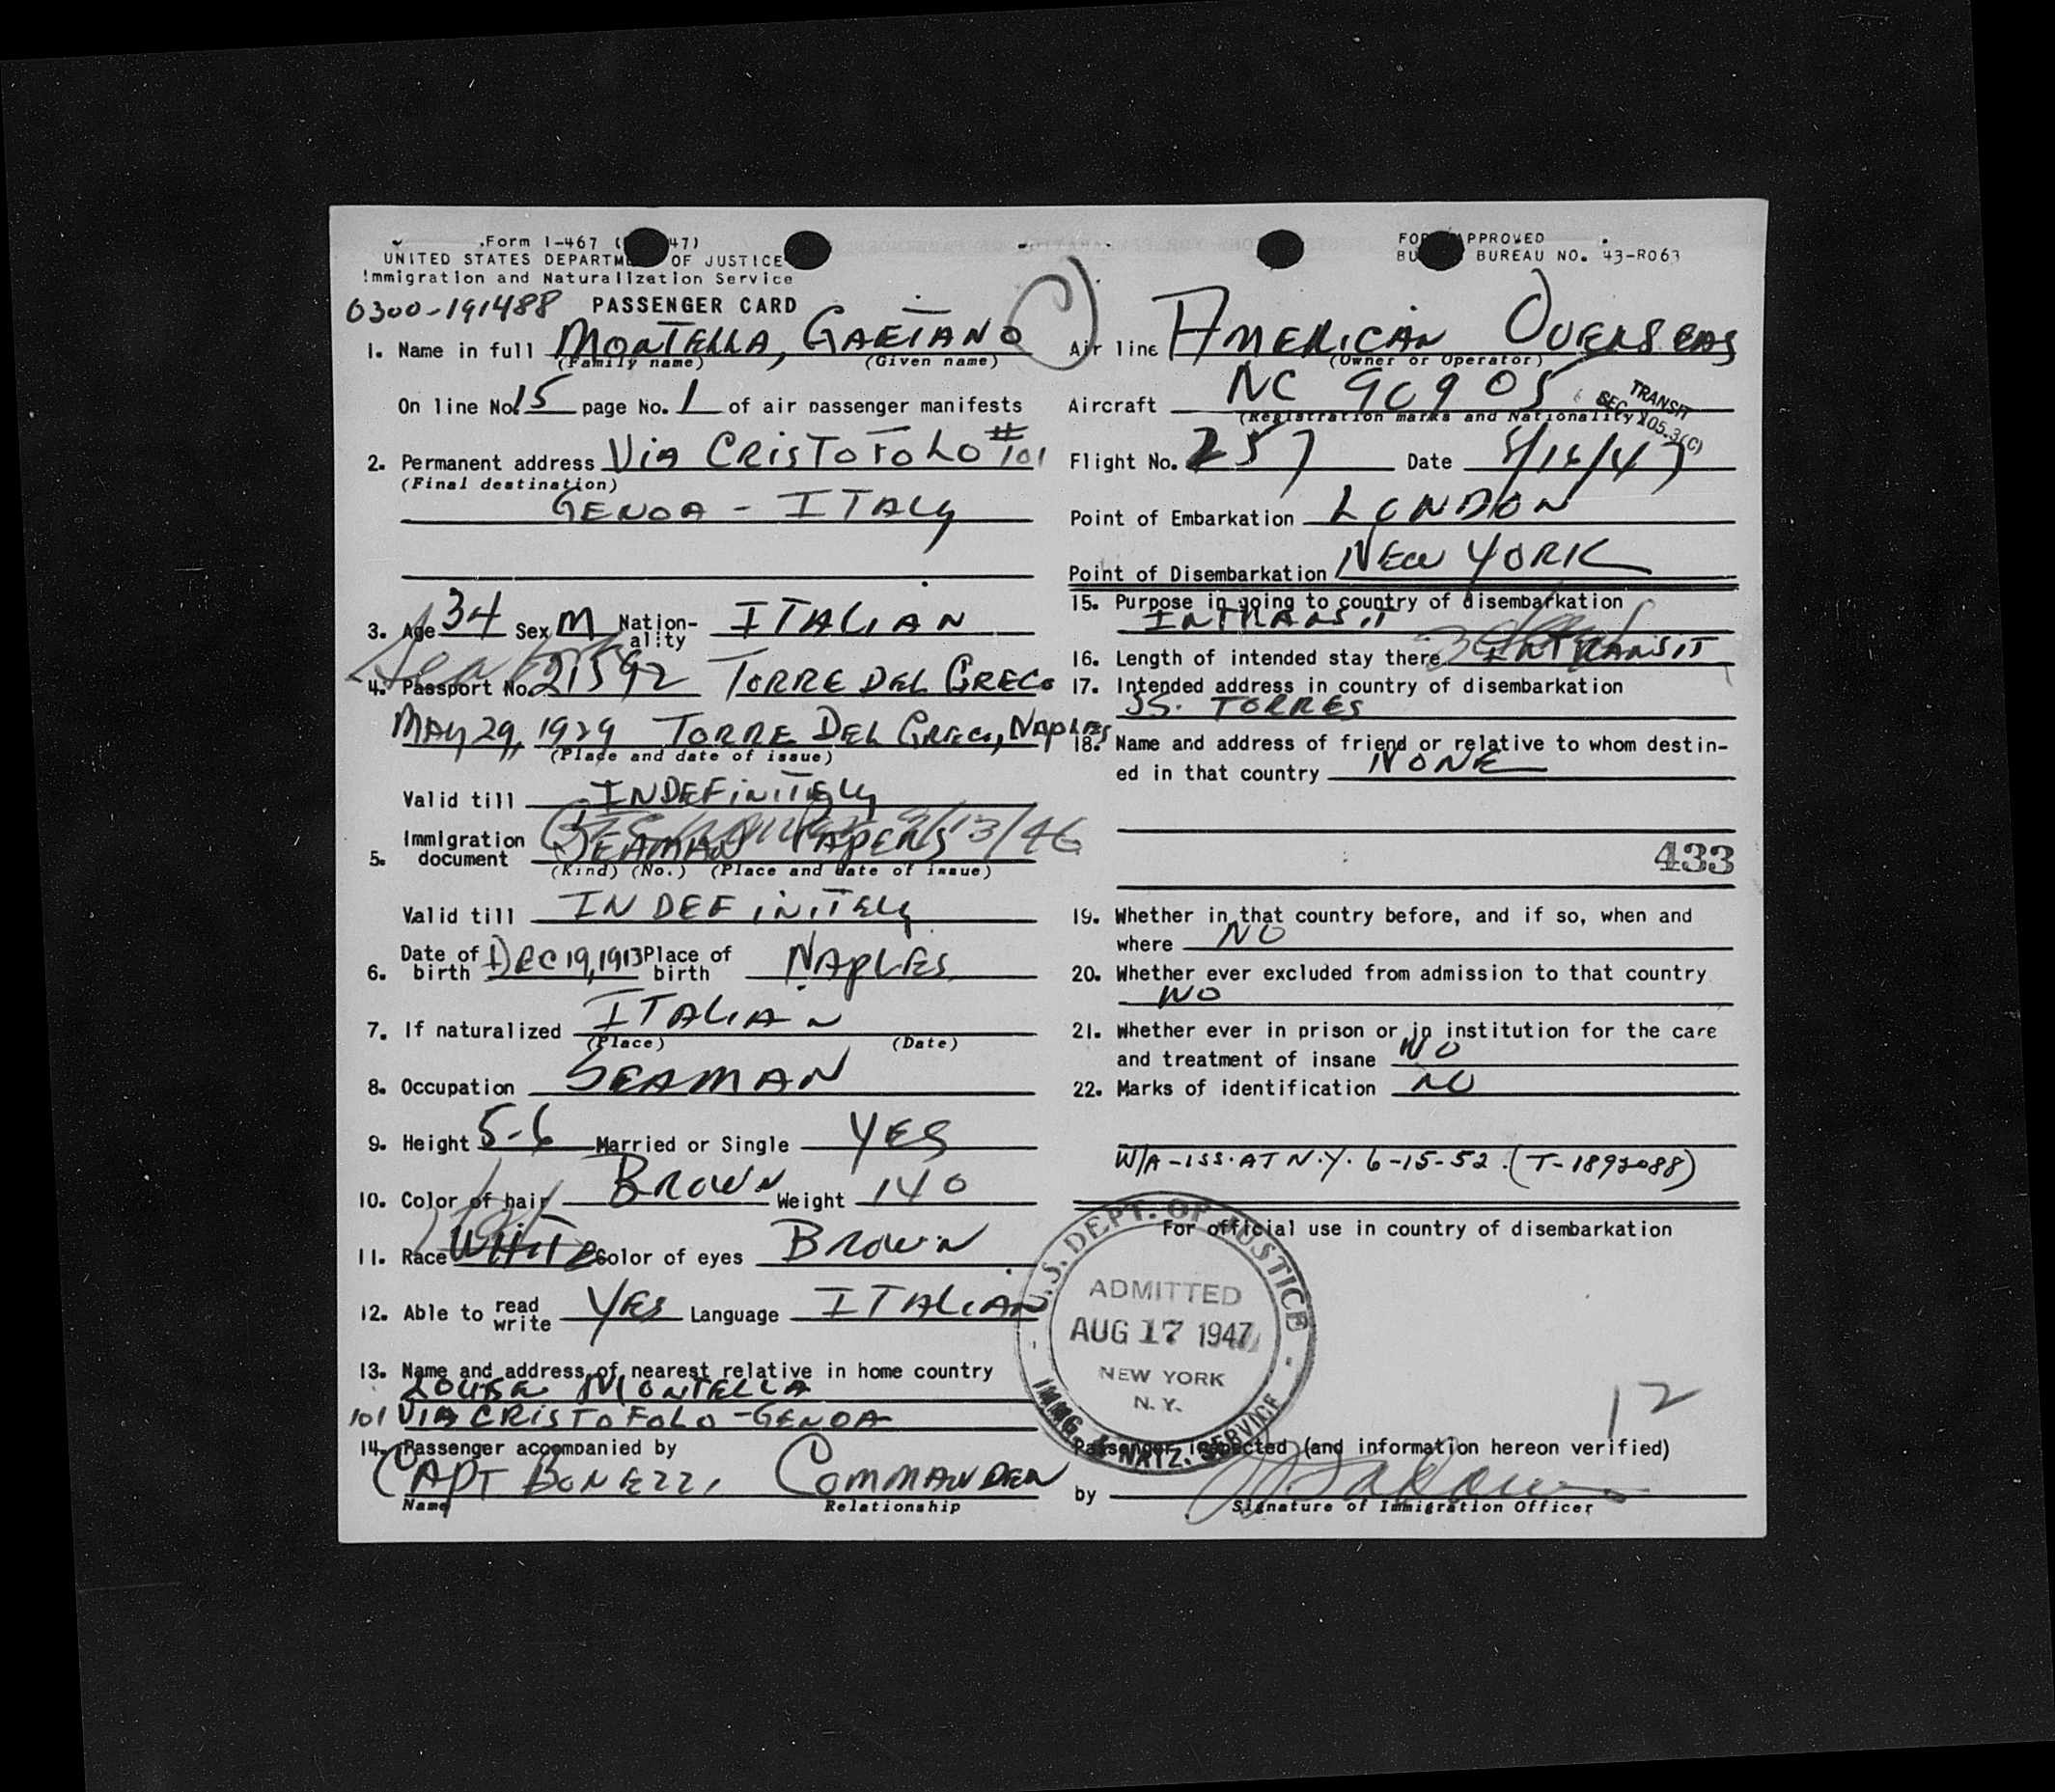 Form I-467 ( 47)
UNITED STATES DEPARTM OF JUSTICE
Immigration and Naturalization Service
0300-191488 PASSENGER CARD
1. Name in full MONTELLA, GAETANO
(Family name) (Given name)
On line No. 15 page No. 1 of air passenger manifests
2. Permanent address VIA CRISTOFOLO #101
(Final destination)
GENOA - ITALY
3. Age 34 Sex M Nation-ality ITALIAN
4. Passport No. 21592 TORRE DEL GRECO
MAY 29, 1929 TORRE DEL GRECO, NAPLES
(Place and date of issue)
Valid till INDEFINITELY
5. Immigration document SEAMAN PAPERS 9/13/46
(Kind) (No.) (Place and date of issue)
Valid till INDEFINITELY
6. Date of birth DEC 19, 1913 Place of birth NAPLES
7. If naturalized ITALIAN
(Place) (Date)
8. Occupation SEAMAN
9. Height 5-6 Married or Single YES
10. Color of hair BROWN Weight 140
11. Race WHITE Color of eyes BROWN
12. Able to read write YES Language ITALIAN
13. Name and address of nearest relative in home country
LOUISE MONTELLA
101 VIA CRISTOFOLO - GENOA
14. Passenger accompanied by
CAPT BONEZZI, COMMANDER
Name Relationship
FOR APPROVED
BU BUREAU NO. 43-R063
Air line AMERICAN OVERSEAS
(Owner or Operator)
Aircraft NC 90905
(Registration marks and Nationality)
TRANSIT
SEC 105.3(C)
Flight No. 257 Date 8/16/47
Point of Embarkation LONDON
Point of Disembarkation NEW YORK
15. Purpose in going to country of disembarkation
INTRANSIT
16. Length of intended stay there INTRANSIT
17. Intended address in country of disembarkation
SS. TORRES
18. Name and address of friend or relative to whom destin-
ed in that country NONE
433
19. Whether in that country before, and if so, when and
where NO
20. Whether ever excluded from admission to that country
NO
21. Whether ever in prison or in institution for the care
and treatment of insane NO
22. Marks of identification NO
W/A-ISS. AT N.Y. 6-15-52. (T-1892088)
For official use in country of disembarkation
U.S. DEPT. OF JUSTICE
ADMITTED
AUG 17 1947
NEW YORK
N.Y.
IMMG. & NATZ. SERVICE
12
Passenger inspected (and information hereon verified)
by
Signature of Immigration Officer